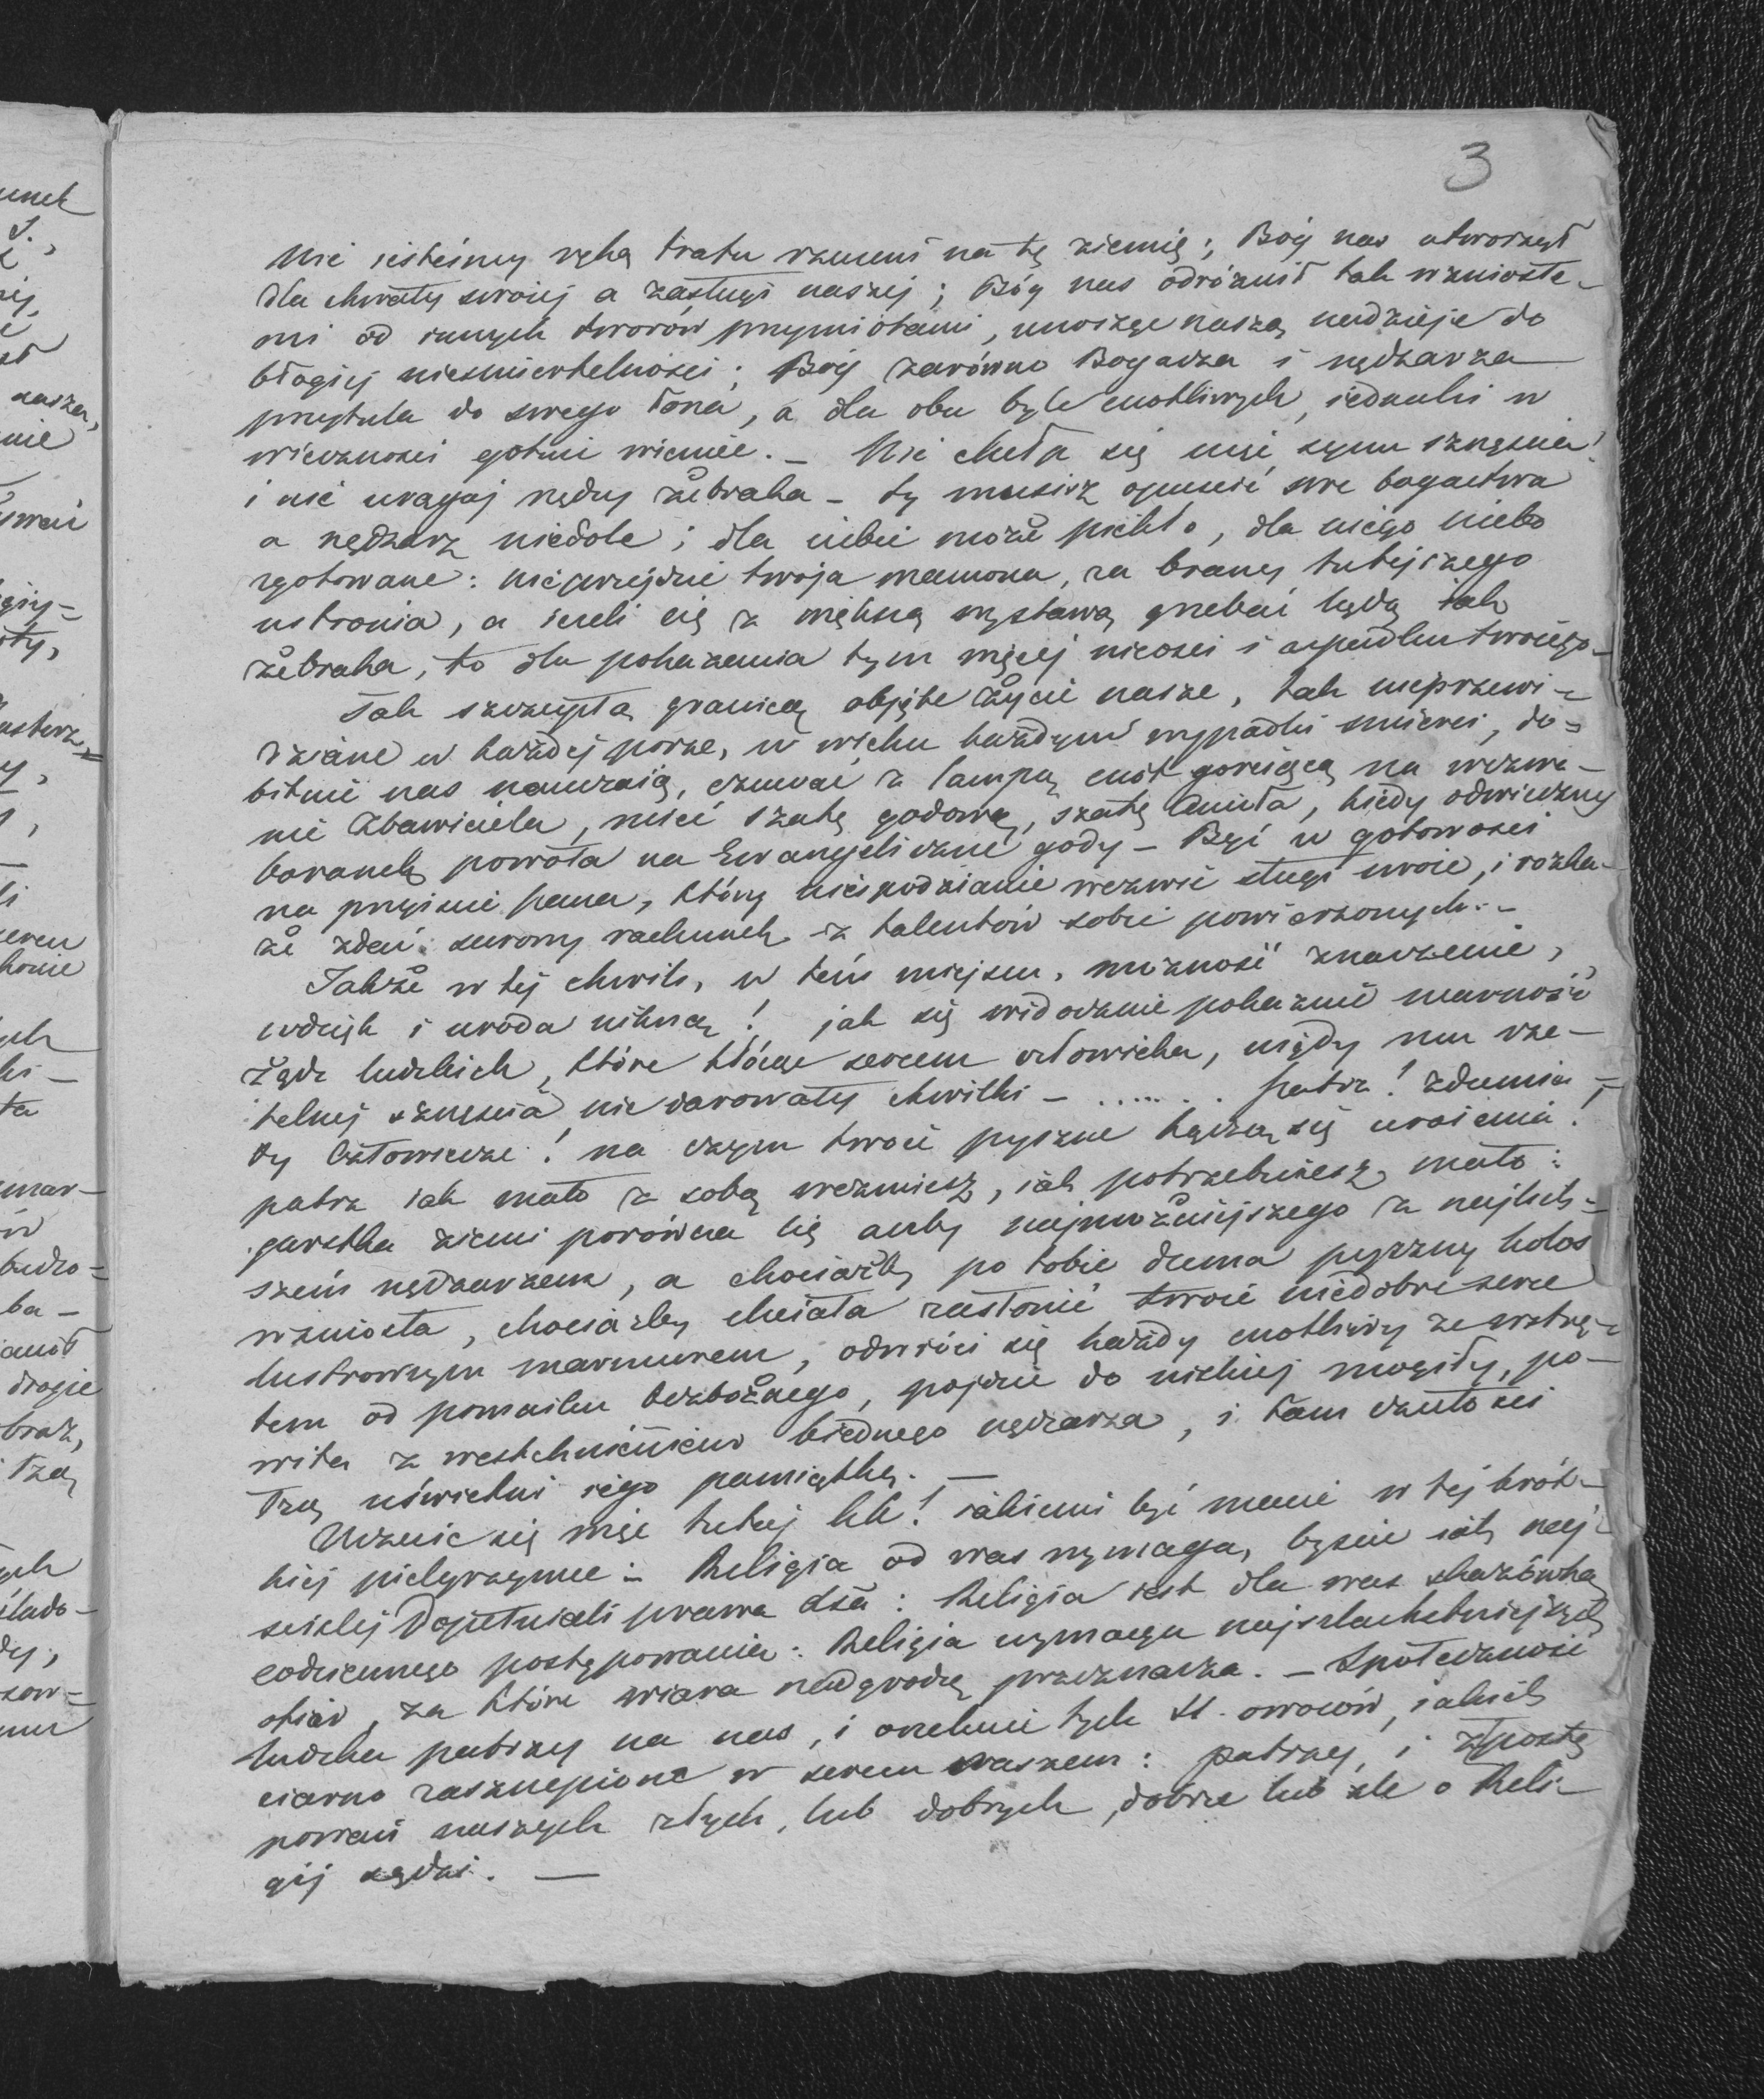 3
Nie iesteśmy ręką trafu rzuceni na tę ziemię; Bóg nas utworzył
dla chwały swoiej a zasługi naszej; Bóg nas odróżnił tak wzniosłe-
mi od innych tworów przymiotami, unosząc naszą nadzieje do
błogiej nieśmiertelności; Bóg zarówno Bogacza i nędzarza
przytula do swego łona, a dla obu byle cnotliwych, iednaki w
wieczności gotuie wieniec. — Nie chełp się więc synu szczęścia!
i nie urągaj nędzy żebraka — ty musisz opuścić swe bogactwa
a nędzarz niedole; dla ciebie może piekło, dla niego niebo
zgotowane: nieprzejdzie twoja mamona, za bramy tutejszego
ustronia, a ieżeli cię z większą wystawą grzebać będą iak
żebraka, to dla pokazania tym więcej nicości i upadku twoiego —
Tak szczupłą granicą objęte życie nasze, tak nieprzewi-
dziane w każdej porze, w wieku każdym wypadki śmierci, do-
bitnie nas nauczaią, czuwać z lampą cnót goreiącą na wezwa-
nie Zbawiciela, mieć szatę godową, szatę Anioła, kiedy odwieczny
baranek powoła na Ewangeliczne gody — Być w gotowości
na przyięcie pana, który niespodzianie wezwie sługi swoie, i rozka-
że zdać surowy rachunek z talentów sobie powierzonych. —
Jakże w tej chwili, w tém miejscu, możność znaczenie,
wdzięk i uroda nikną! jak się widocznie pokazuie marność
żądz ludzkich, które kłócąc sercem człowieka, nigdy mu rze-
telnej szczęścia nie darowały chwilki — ....... patrz! zdumiej
ty Człowiecze! na czym twoie pyszne kończą się urojenia!
patrz iak mało z sobą weźmiesz, iak potrzebuiesz mało:
garstka ziemi porówna cię choćby najmożniejszego z najlich-
szém nędzarzem, a chociażby po tobie duma pyszny kolos
wzniosła, chociażby chciała zasłonić twoie niedobre serce
lustrownym marmurem, odwróci się każdy cnotliwy ze wstrę-
tem od pomniku bezbożnego, pojdzie do nizkiej mogiły, po-
wita z westchnieniem biednego nędzarza, i tam czułości
łzą uświetni iego pamiątkę. —
Uczcie się więc tutaj kk! iakiemi być macie w tej krót-
kiej pielgrzymce: Religia od was wymaga, byście iak naj-
ściślej dopełniali prawa Boga: Religia iest dla was skazówką
codziennego postępowania: Religia wymaga najszlachetniejszych
ofiar, za które wiara nadgrodę przeznacza. — Społeczność
ludzka patrzy na nas, i oczekuie tych St. owoców, iakich
ziarno zaszczepione w sercu waszem: patrzy, i z postę
powań naszych złych, lub dobrych, dobrze lub źle o Reli-
gij sądzi. —